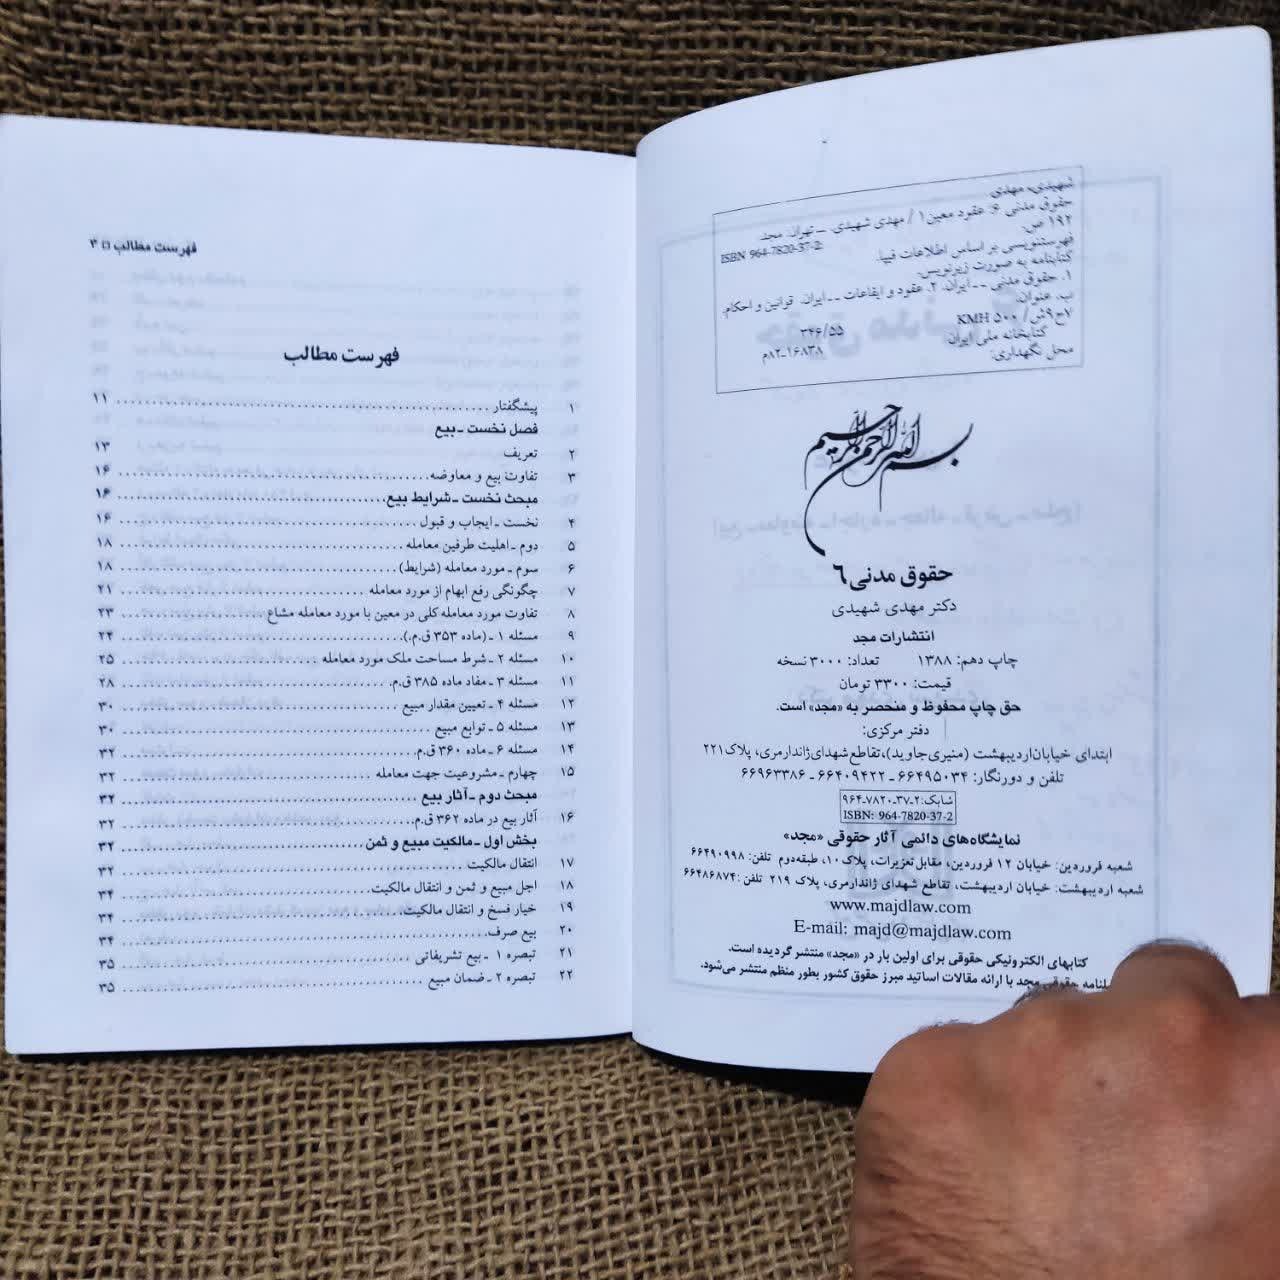 شهیدی، مهدی
حقوق مدنی ۶: عقود معین۱ / مهدی شهیدی. ــ تهران: مجد.
۱۹۲ ص.
ISBN 964-7820-37-2:
فهرستنویسی بر اساس اطلاعات فیپا.
کتابنامه به صورت زیرنویس.
۱. حقوق مدنی ــ ایران. ۲. عقود و ایقاعات ــ ایران. قوانین و احکام.
ب. عنوان.
۷ح۹ش/ KMH ۵۰۰ ۳۴۶/۵۵
کتابخانه ملی ایران: ۸۲-۱۶۸۳۸م
محل نگهداری:
بسم الله الرحمن الرحیم
حقوق مدنی ٦
دکتر مهدی شهیدی
انتشارات مجد
چاپ دهم: ۱۳۸۸ تعداد: ۳۰۰۰ نسخه
قیمت: ۳۳۰۰ تومان
حق چاپ محفوظ و منحصر به «مجد» است.
دفتر مرکزی:
ابتدای خیابان اردیبهشت (منیری جاوید)، تقاطع شهدای ژاندارمری، پلاک ۲۲۱
تلفن و دورنگار: ۶۶۴۹۵۰۳۴ ـ ۶۶۴۰۹۴۲۲ ـ ۶۶۹۶۳۳۸۶
شابک: ۲-۳۷-۷۸۲۰-۹۶۴
ISBN: 964-7820-37-2
نمایشگاه‌های دائمی آثار حقوقی «مجد»
شعبه فروردین: خیابان ۱۲ فروردین، مقابل تعزیرات، پلاک ۱۰، طبقه دوم تلفن: ۶۶۴۹۰۹۹۸
شعبه اردیبهشت: خیابان اردیبهشت، تقاطع شهدای ژاندارمری، پلاک ۲۱۹ تلفن: ۶۶۴۸۶۸۷۴
www.majdlaw.com
E-mail: majd@majdlaw.com
کتابهای الکترونیکی حقوقی برای اولین بار در «مجد» منتشر گردیده است.
حقوقی مجد با ارائه مقالات اساتید مبرز حقوق کشور بطور منظم منتشر می‌شود.
فهرست مطالب □ ۳
فهرست مطالب
۱ پیشگفتار ........ ۱۱
فصل نخست ـ بیع
۲ تعریف ........ ۱۳
۳ تفاوت بیع و معاوضه ........ ۱۶
مبحث نخست ـ شرایط بیع ........ ۱۶
۴ نخست ـ ایجاب و قبول ........ ۱۶
۵ دوم ـ اهلیت طرفین معامله ........ ۱۸
۶ سوم ـ مورد معامله (شرایط) ........ ۱۸
۷ چگونگی رفع ابهام از مورد معامله ........ ۲۱
۸ تفاوت مورد معامله کلی در معین با مورد معامله مشاع ........ ۲۳
۹ مسئله ۱ ـ (ماده ۳۵۳ ق.م.) ........ ۲۴
۱۰ مسئله ۲ ـ شرط مساحت ملک مورد معامله ........ ۲۵
۱۱ مسئله ۳ ـ مفاد ماده ۳۸۵ ق.م. ........ ۲۸
۱۲ مسئله ۴ ـ تعیین مقدار مبیع ........ ۳۰
۱۳ مسئله ۵ ـ توابع مبیع ........ ۳۰
۱۴ مسئله ۶ ـ ماده ۳۶۰ ق.م. ........ ۳۲
۱۵ چهارم ـ مشروعیت جهت معامله ........ ۳۲
مبحث دوم ـ آثار بیع ........ ۳۲
۱۶ آثار بیع در ماده ۳۶۲ ق.م. ........ ۳۲
بخش اول ـ مالکیت مبیع و ثمن ........ ۳۲
۱۷ انتقال مالکیت ........ ۳۲
۱۸ اجل مبیع و ثمن و انتقال مالکیت ........ ۳۴
۱۹ خیار فسخ و انتقال مالکیت ........ ۳۴
۲۰ بیع صرف ........ ۳۴
۲۱ تبصره ۱ ـ بیع تشریفاتی ........ ۳۵
۲۲ تبصره ۲ ـ ضمان مبیع ........ ۳۵